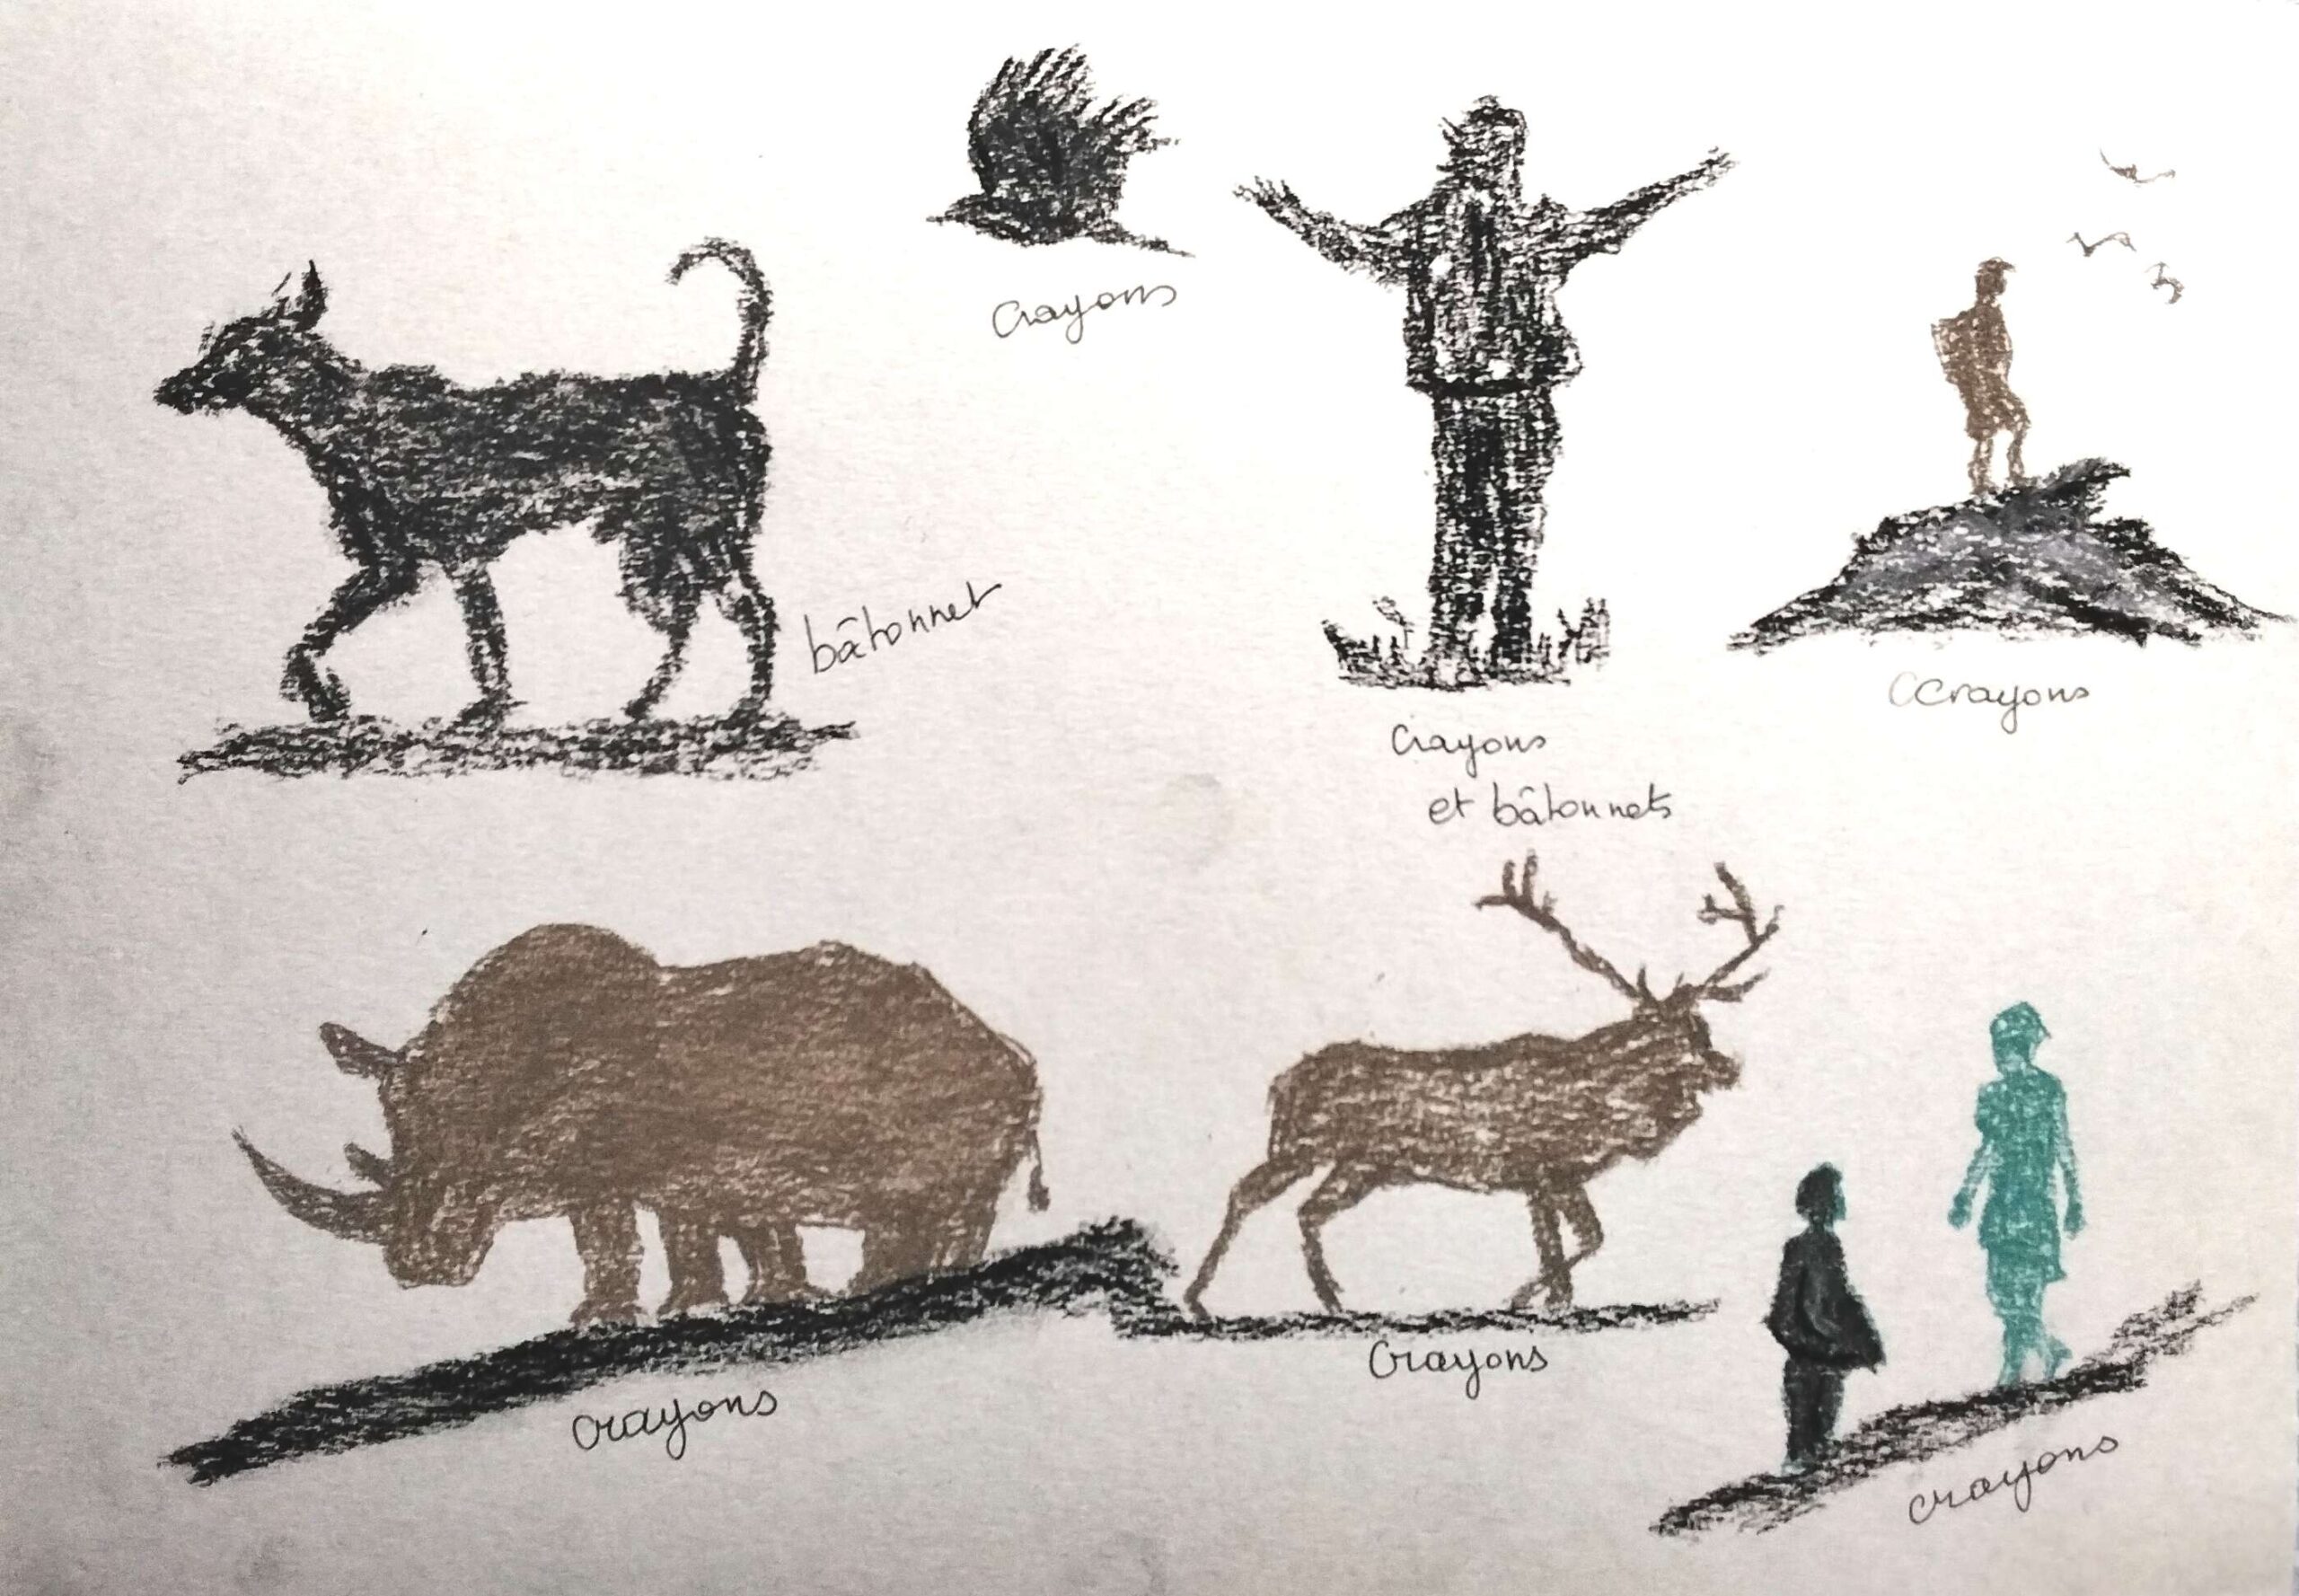 Crayons
bâtonnet
Crayons
et bâtonnets
CCrayons
crayons
Crayons
crayons